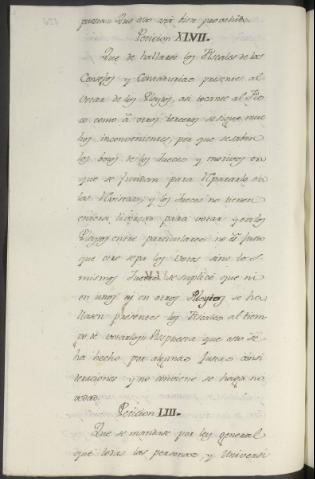 Peticion XLVII.
Que de hallarse los Fiscales de los
Consejos y Contadurias presentes al
votar de los Pleytos, asi tocantes al Fis
co como à otros terceros se sigue mu
chos inconvenientes, por que se saben
los votos de los Jueces y motivos en
que se fundan para repararlo en
las Revistas, y los Jueces no tienen
entera livertad para votar y en los
Pleytos entre particulares no és justo
que otro sepa los votos sino los
mismos Jueces se suplicó que ni
en unos ni en otros Pleytos se ha
llasen presentes los Fiscales al tiem
po de votarlos; Respuesta que esto se
ha hecho por algunas Justas consi
deraciones y no conviene se haga no
vedad.
Peticion LIII.
Que se mandase por ley general
que todas las personas y Universi